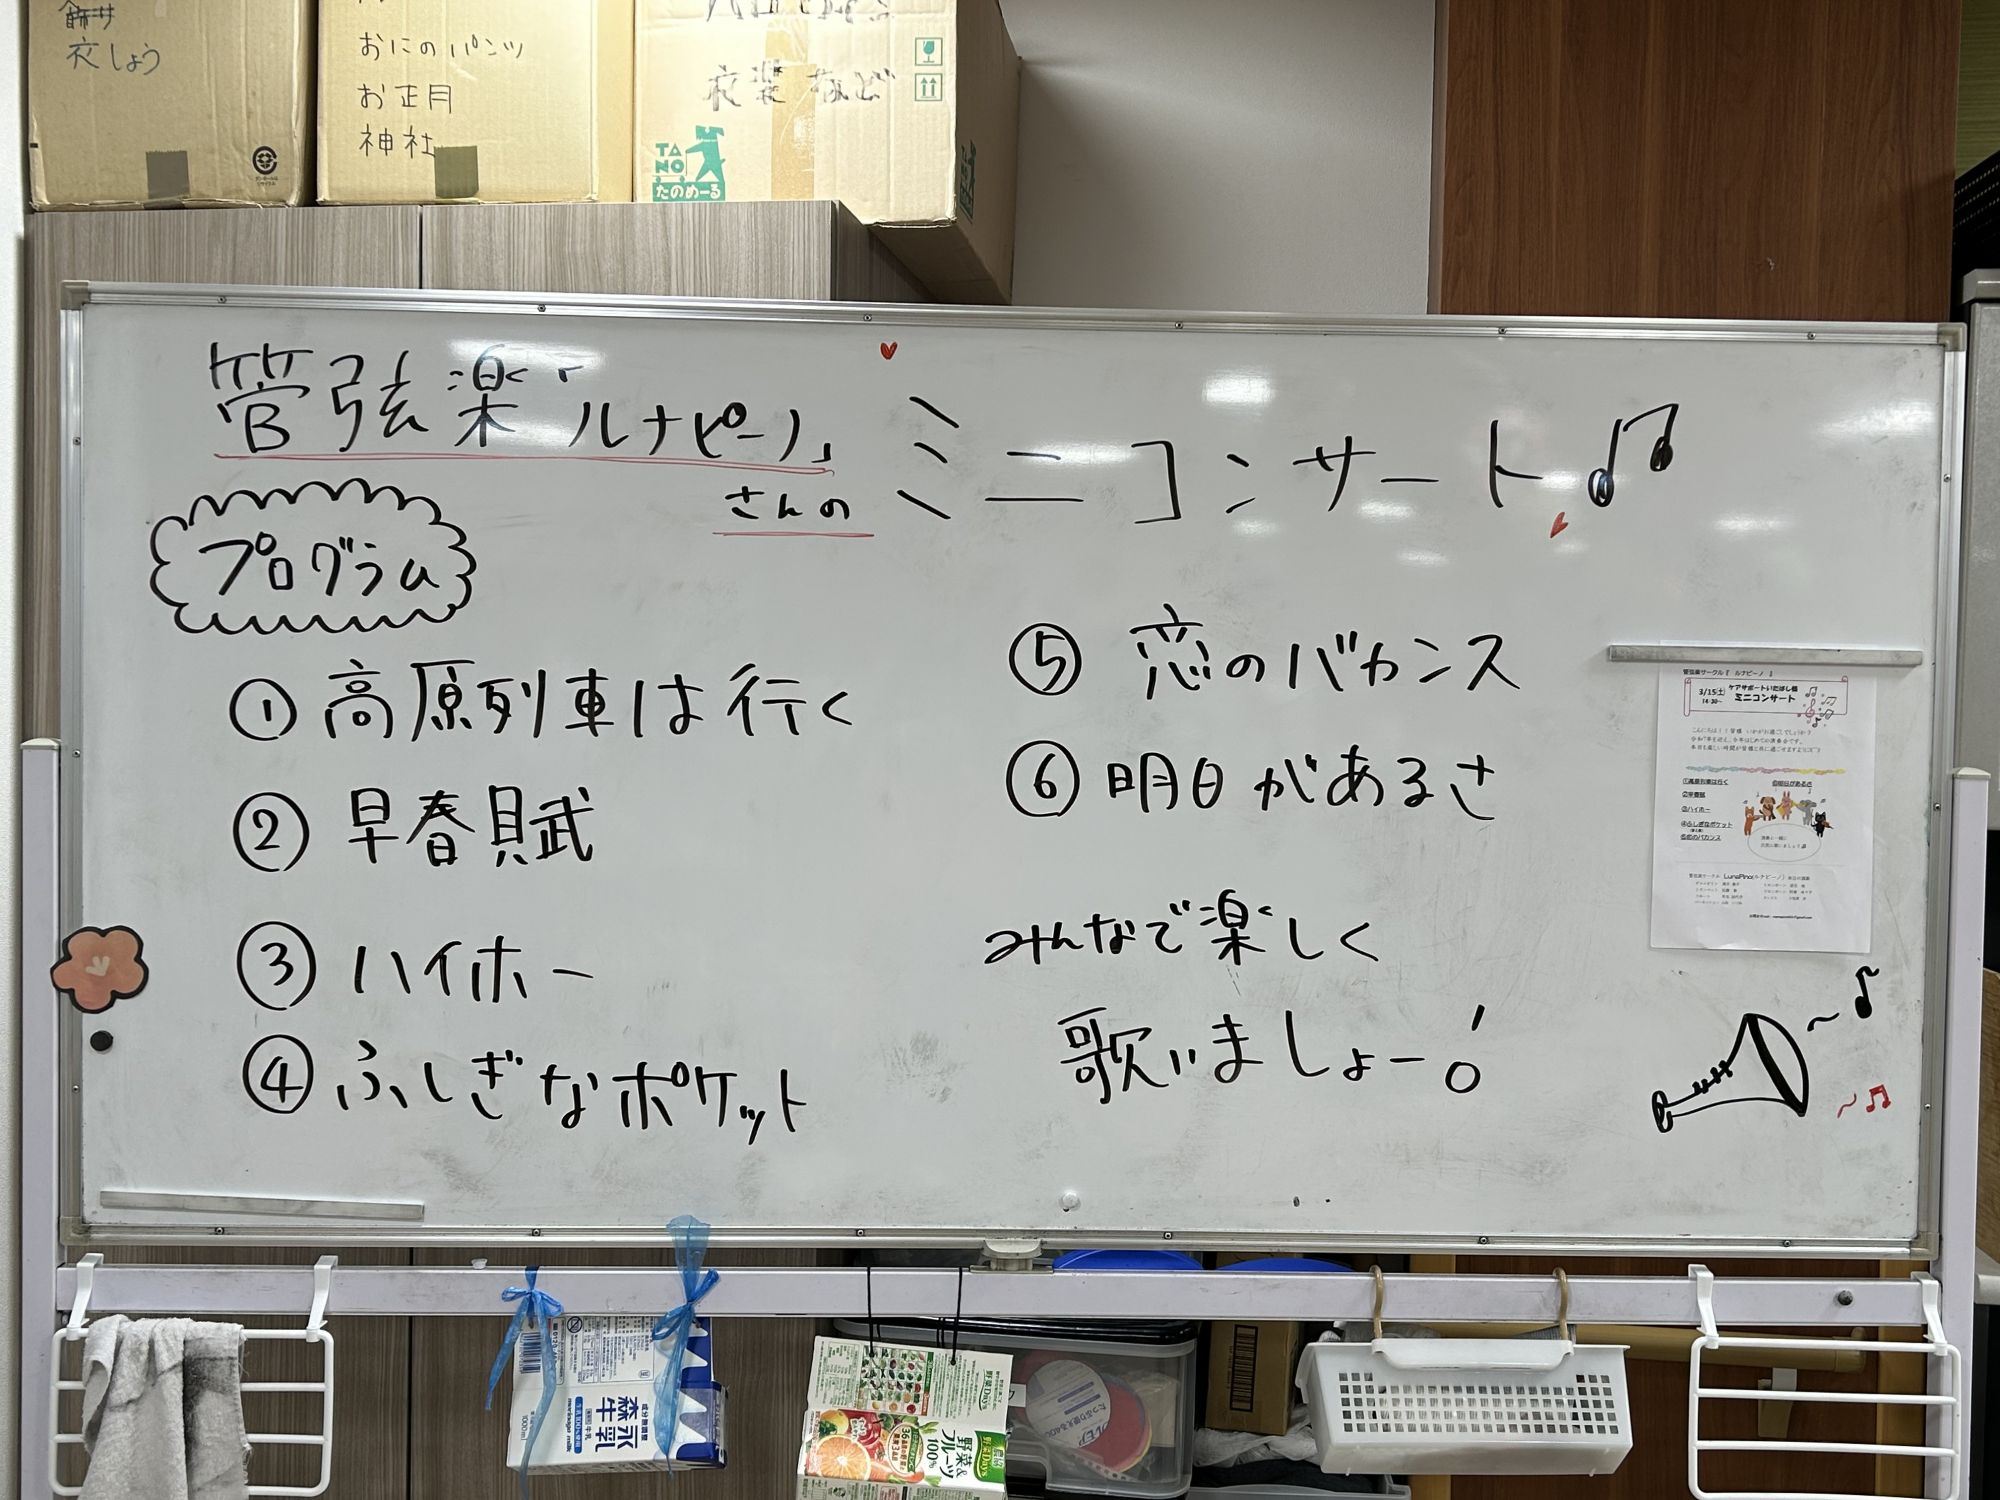 衣しょう
おにのパンツ
お正月
神社
衣装など
TA
NO
たのめーる
管弦楽「ルナピーノ」
さんの
ミニコンサート
プログラム
① 高原列車は行く
② 早春賦
③ ハイホー
④ ふしぎなポケット
⑤ 恋のバカンス
⑥ 明日があるさ
みんなで楽しく
歌いましょー!
管弦楽サークル『 ルナピーノ 』
3/15(土)
14:30~
ケアサポートいたばし
ミニコンサート
①高原列車は行く
②早春賦
③ハイホー
④ふしぎなポケット
⑤恋のバカンス
⑥明日があるさ
管弦楽サークル LunaPino(ルナピーノ)
森永
牛乳
morinaga milk
1000ml
野菜Days
野菜&
フルーツ
100%